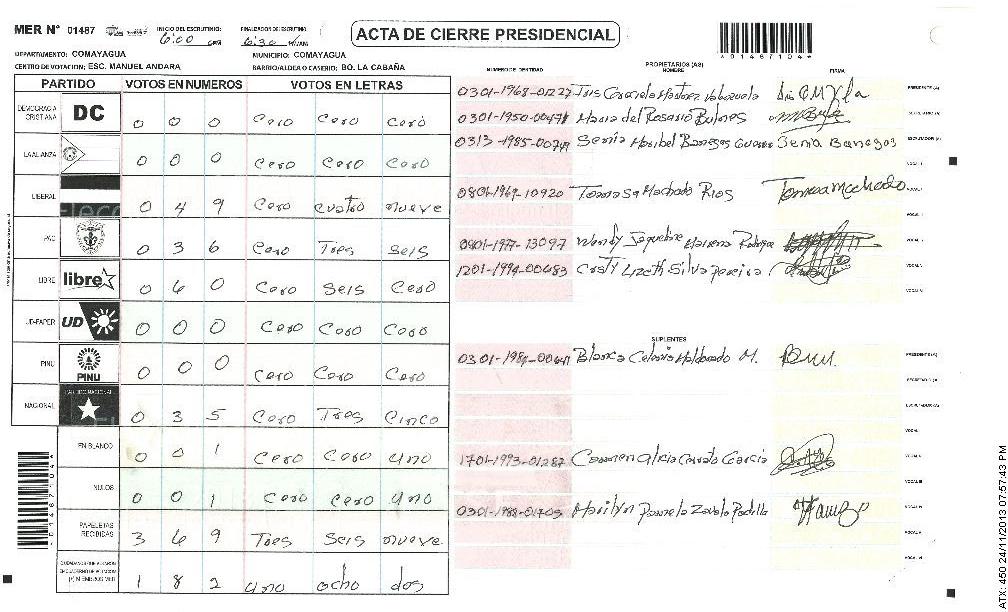 MER N° 01487
INICIO DEL ESCRUTINIO: 6:00
FINALIZACION DE ESCRUTINIO: 6:30
ACTA DE CIERRE PRESIDENCIAL
*014671041*
DEPARTAMENTO: COMAYAGUA
MUNICIPIO: COMAYAGUA
CENTRO DE VOTACION: ESC. MANUEL ANDARA
BARRIO/ALDEA O CASERIO: BO. LA CABAÑA
NUMERO DE IDENTIDAD
PROPIETARIOS (AS)
NOMBRE
FIRMA
PARTIDO VOTOS EN NUMEROS VOTOS EN LETRAS
DEMOCRACIA CRISTIANA DC 0 0 0 Cero Cero Cero
LA ALIANZA 0 0 0 Cero Cero Cero
LIBERAL 0 4 9 Cero cuatro nueve
PAC 0 3 6 Cero Tres Seis
LIBRE libre 0 6 0 Cero Seis Cero
UD-FAPER UD 0 0 0 Cero Cero Cero
PINU PINU 0 0 0 Cero Cero Cero
NACIONAL PARTIDO NACIONAL 0 3 5 Cero Tres Cinco
EN BLANCO 0 0 1 Cero Cero uno
NULOS 0 0 1 Cero Cero uno
PAPELETAS RECIBIDAS 3 6 9 Tres Seis nueve
1 8 2 uno ocho dos
0301-1968-01227 Martinez Valenzuela PRESIDENTE (A)
0301-1950-00471 Maria del Rosario Bulnes SECRETARIO (A)
0313-1985-00741 Senia Maribel Banegas Senia Banegas ESCRUTADOR (A)
0801-1969-10920 Tomasa Machado Rios Tomasa Machado
0801-1977-13097 Wendy Jaqueline
1201-1994-00683 Lizeth Silva Pereira
SUPLENTES
Blanca Maldonado M. PRESIDENTE (A)
SECRETARIO (A)
ESCRUTADOR (A)
1701-1993-01287 Carmen Alicia Garcia
0301-1988-01705 Marilyn Pamela Zavala Padilla
ATX: 450 24/11/2013 07:57:43 PM